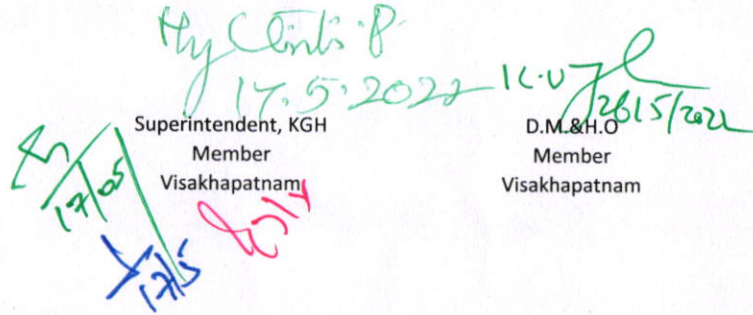 17.5.2022
26/5/2022
Superintendent, KGH
Member
Visakhapatnam
D.M.&H.O
Member
Visakhapatnam
17/05
17/5